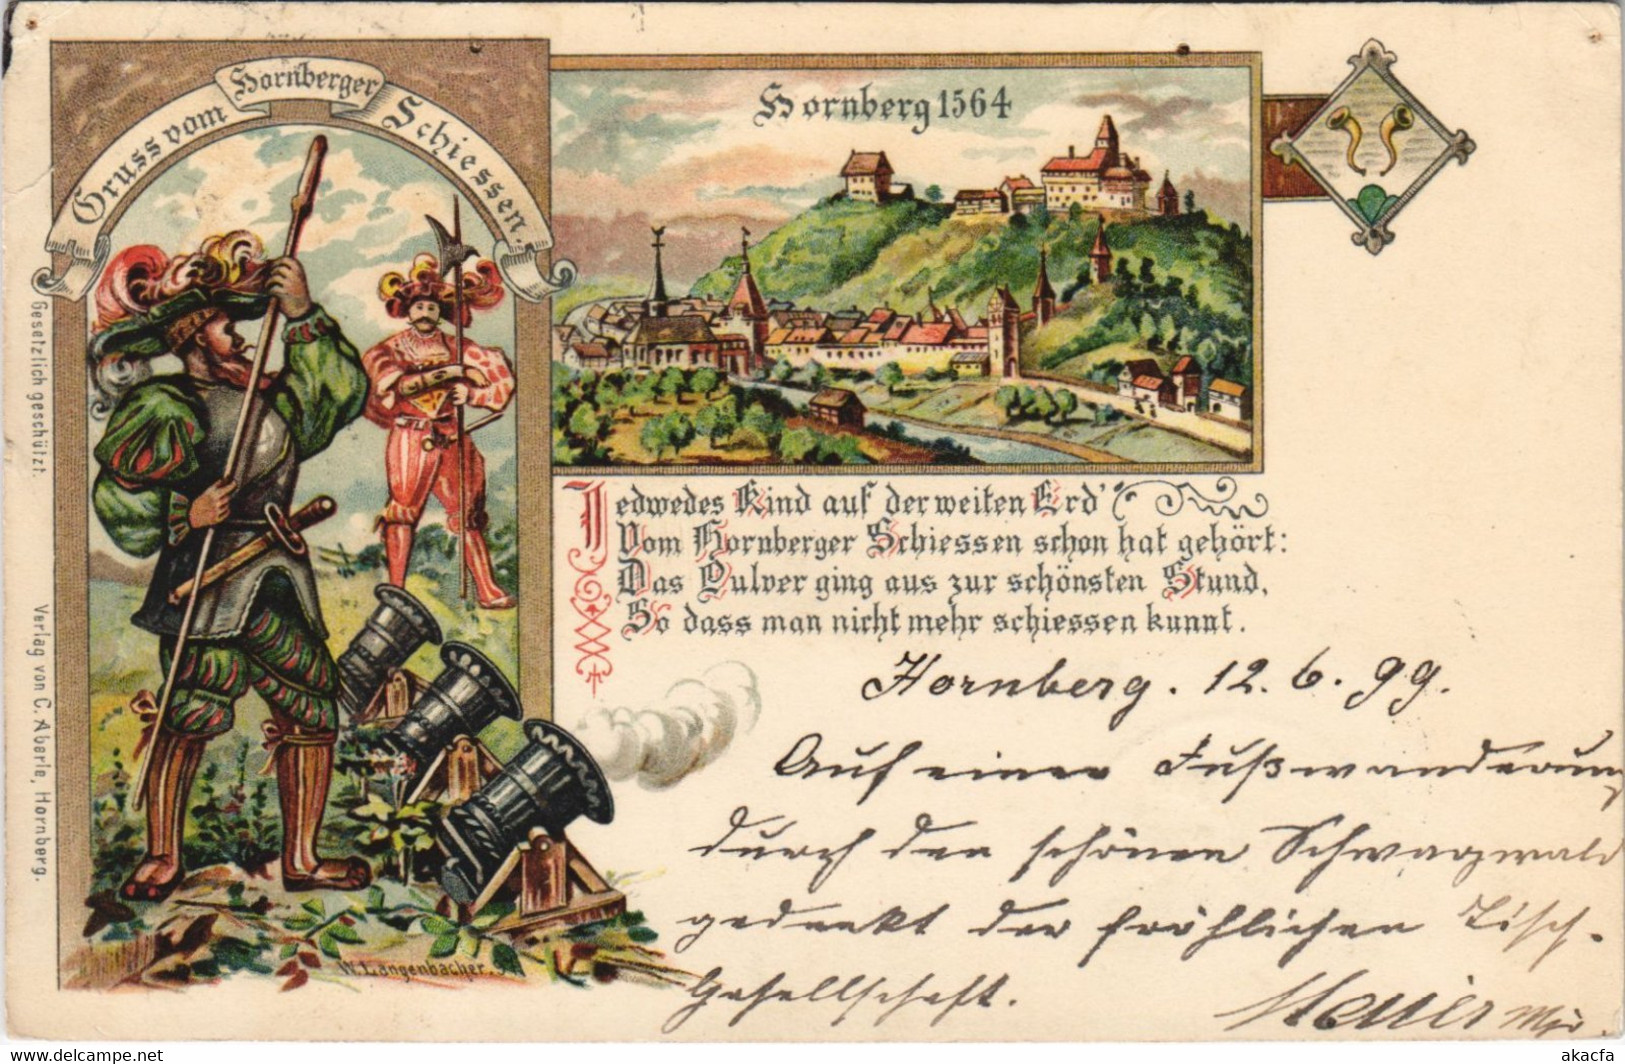 Gruss vom Hornberger Schiessen.
Hornberg 1564
Jedwedes Kind auf der weiten Erd'
Vom Hornberger Schiessen schon hat gehört:
Das Pulver ging aus zur schönsten Stund,
So dass man nicht mehr schiessen kunnt.
Hornberg. 12. 6. 99.
Auf einer Fußwanderung
durch den schönen Schwarzwald
gedenkt der fröhlichen Tisch-
Gesellschaft.
Gesetzlich geschützt.
Verlag von C. Aberle, Hornberg.
W. Langenbacher.
delcampe.net
akacfa